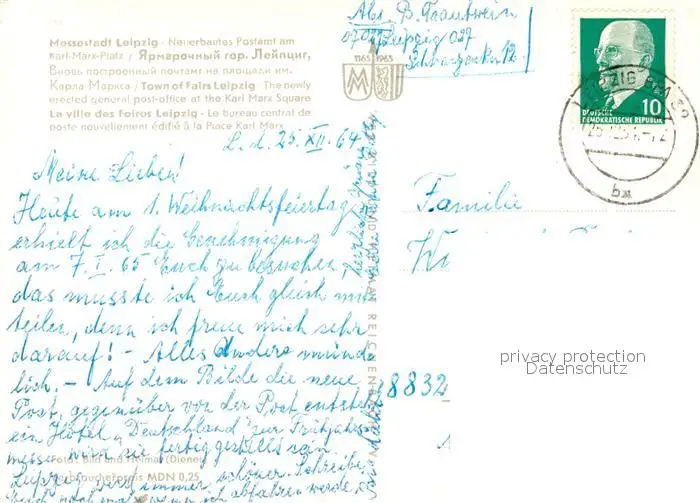 Messestadt Leipzig - Neuerbautes Postamt am
Karl-Marx-Platz / Ярмарочный гор. Лейпциг,
Вновь построенный почтамт на площади им.
Карла Маркса / Town of Fairs Leipzig - The newly
erected general post-office at the Karl Marx Square
La ville des foires Leipzig - Le bureau central de
poste nouvellement édifié à la Place Karl Marx
1165 1965
Abs. B. Trautwein
Leipzig 027
12
10
DEUTSCHE
DEMOKRATISCHE REPUBLIK
L. d. 25. XII. 64
Meine Lieben!
Heute am 1. Weihnachtsfeiertag
erhielt ich die Genehmigung
am 7. I. 65 Euch zu besuchen,
das musste ich Euch gleich mit
teilen, denn ich freue mich sehr
darauf! - Alles Andere münd
lich. - Auf dem Bilde die neue
Post, gegenüber von der Post entsteht
ein Hotel „Deutschland" zur Frühjahrs
messe wird sie fertiggestellt sein.
Leipzig wird immer schöner. Schreibe
Euch noch mal wann ich abfahren werde,
Foto: Bild und Heimat (Diener)
Verbraucherpreis MDN 0,25
Familie
8832
privacy protection
Datenschutz